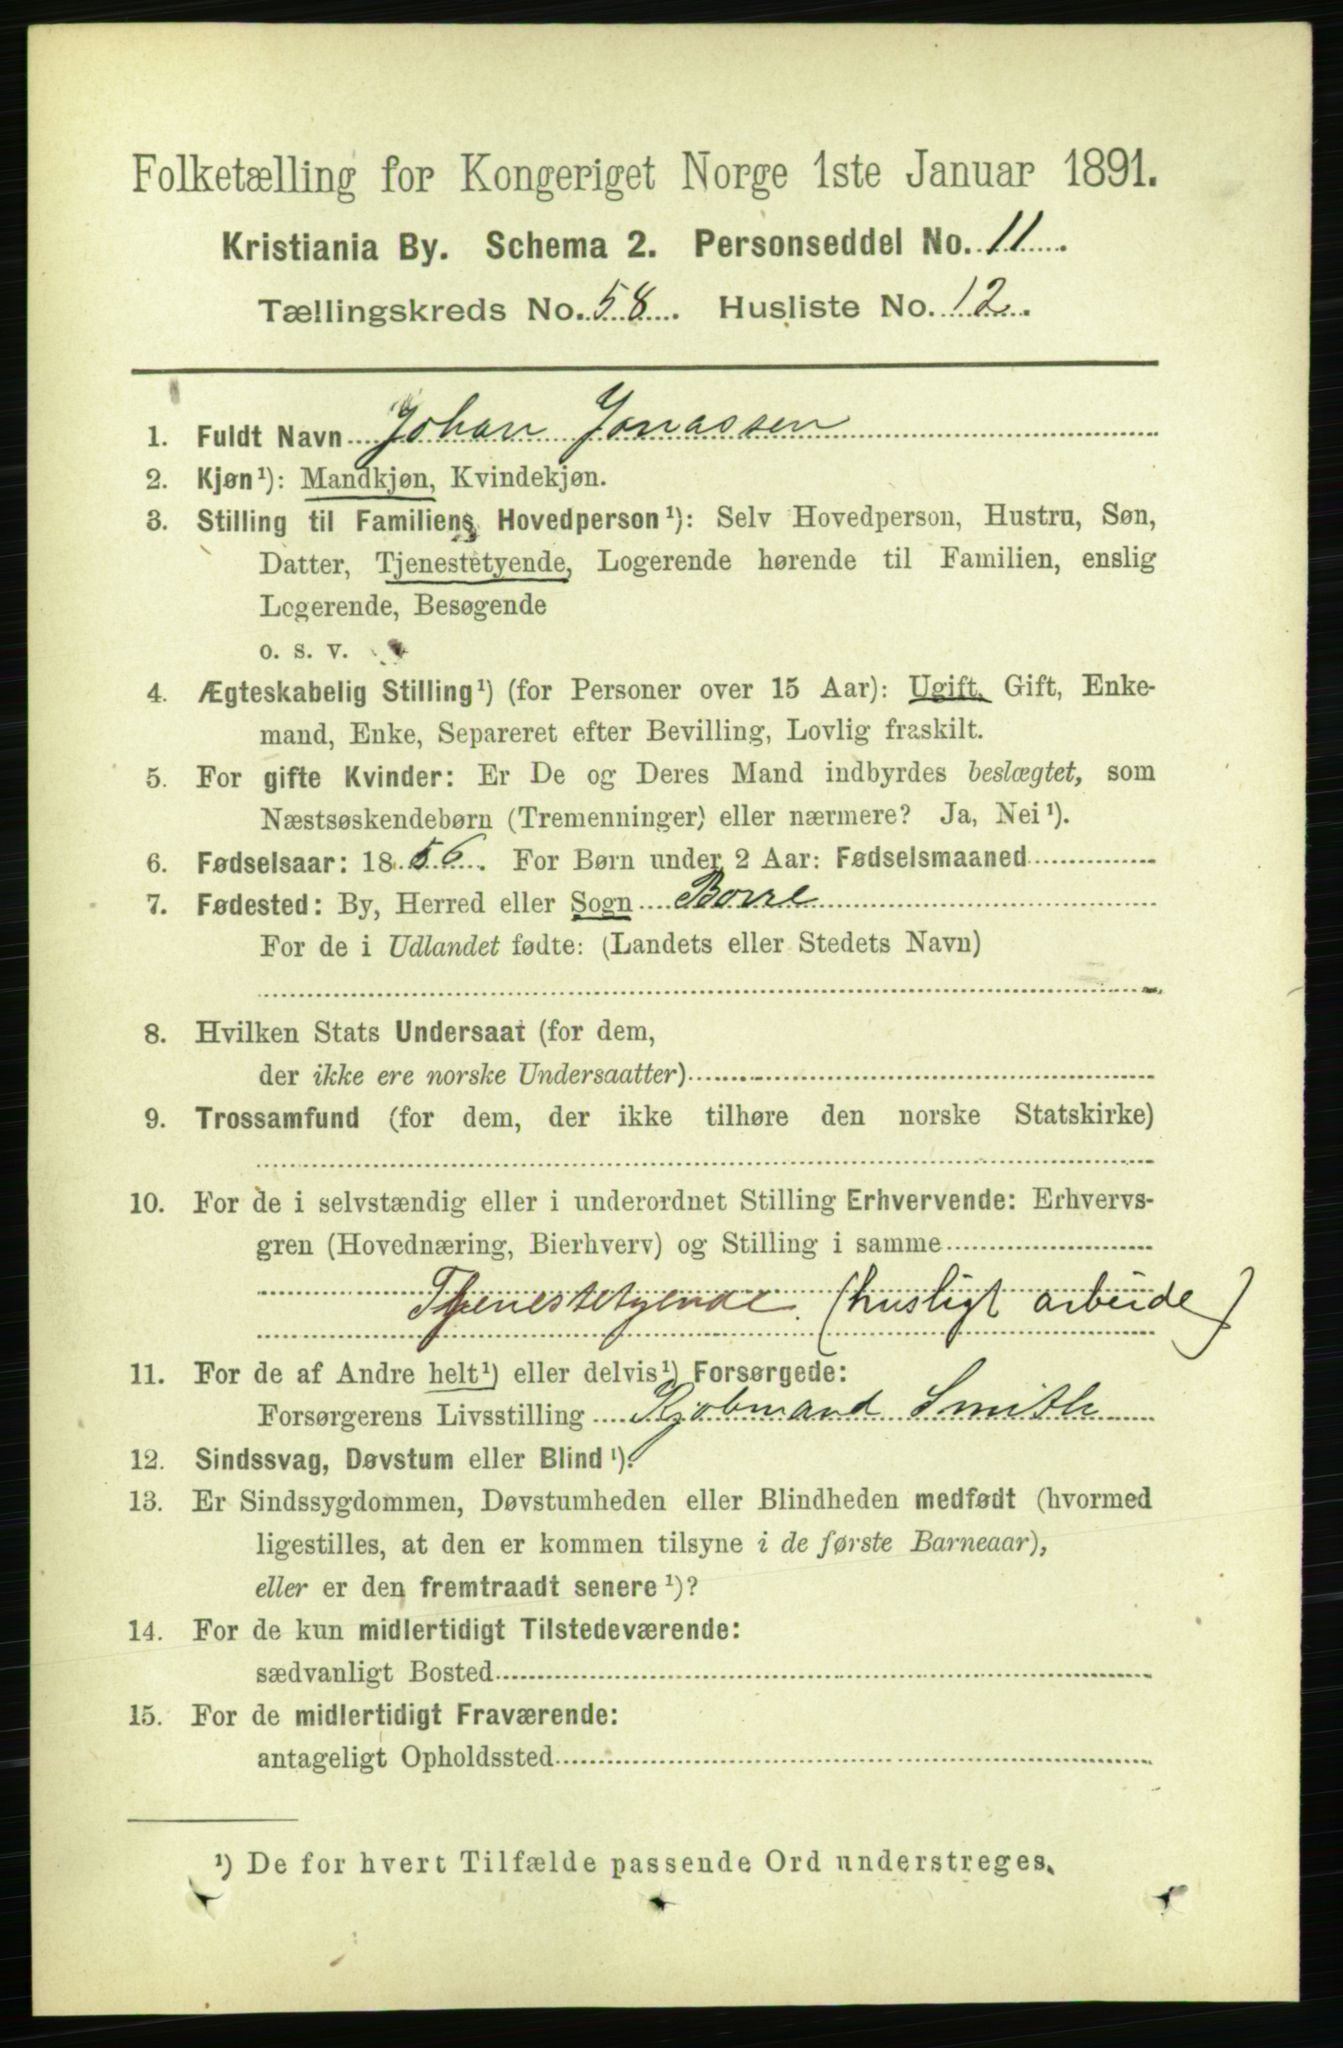 Folketælling for Kongeriget Norge 1ste Januar 1891.
Kristiania By. Schema 2. Personseddel No. 11.
Tællingskreds No. 58. Husliste No. 12.
1. Fuldt Navn Johan Jonassen
2. Kjøn¹): Mandkjøn, Kvindekjøn.
3. Stilling til Familiens Hovedperson¹): Selv Hovedperson, Hustru, Søn,
Datter, Tjenestetyende, Logerende hørende til Familien, enslig
Logerende, Besøgende
o. s. v.
4. Ægteskabelig Stilling¹) (for Personer over 15 Aar): Ugift, Gift, Enke-
mand, Enke, Separeret efter Bevilling, Lovlig fraskilt.
5. For gifte Kvinder: Er De og Deres Mand indbyrdes beslægtet, som
Næstsøskendebørn (Tremenninger) eller nærmere? Ja, Nei¹).
6. Fødselsaar: 1856. For Børn under 2 Aar: Fødselsmaaned
7. Fødested: By, Herred eller Sogn Borre
For de i Udlandet fødte: (Landets eller Stedets Navn)
8. Hvilken Stats Undersaat (for dem,
der ikke ere norske Undersaatter)
9. Trossamfund (for dem, der ikke tilhøre den norske Statskirke)
10. For de i selvstændig eller i underordnet Stilling Erhvervende: Erhvervs-
gren (Hovednæring, Bierhverv) og Stilling i samme
Tjenestetyende. (husligt arbeide)
11. For de af Andre helt¹) eller delvis¹) Forsørgede:
Forsørgerens Livsstilling Kjøbmand Smith
12. Sindssvag, Døvstum eller Blind¹).
13. Er Sindssygdommen, Døvstumheden eller Blindheden medfødt (hvormed
ligestilles, at den er kommen tilsyne i de første Barneaar),
eller er den fremtraadt senere¹)?
14. For de kun midlertidigt Tilstedeværende:
sædvanligt Bosted
15. For de midlertidigt Fraværende:
antageligt Opholdssted
¹) De for hvert Tilfælde passende Ord understreges.